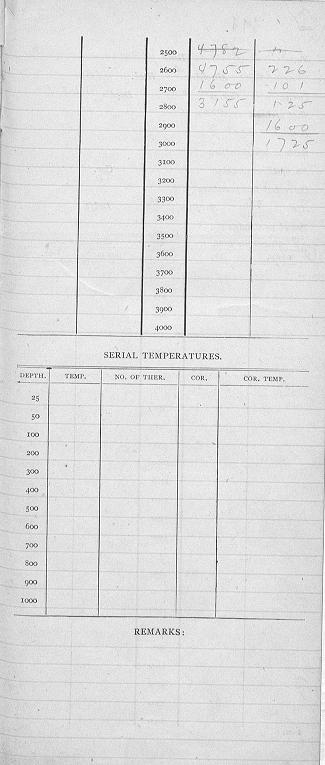 2500 4782 "
2600 4755 226
2700 1600 101
2800 3155 125
2900 1600
3000 1725
3100
3200
3300
3400
3500
3600
3700
3800
3900
4000
SERIAL TEMPERATURES.
DEPTH. TEMP. NO. OF THER. COR. COR. TEMP.
25
50
100
200
300
400
500
600
700
800
900
1000
REMARKS: